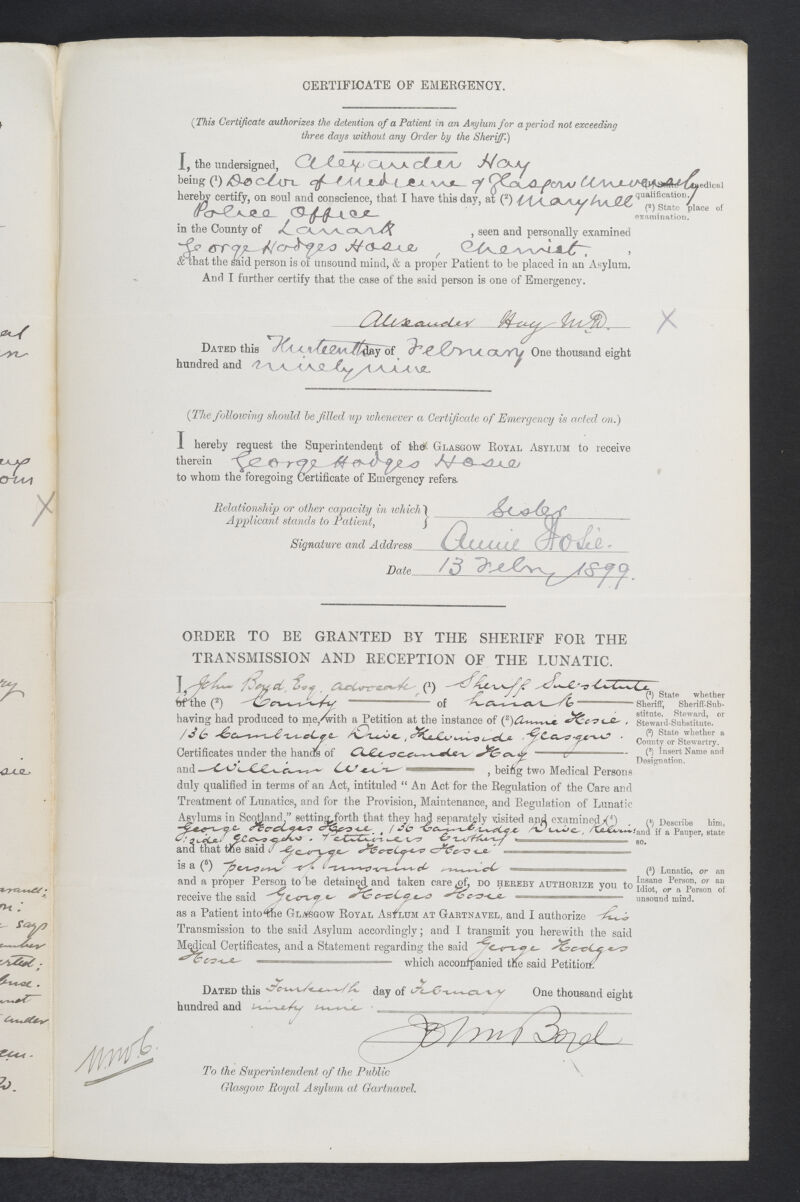 CERTIFICATE OF EMERGENCY.
(This Certificate authorizes the detention of a Patient in an Asylum for a period not exceeding
three days without any Order by the Sheriff.)
I, the undersigned, Alexander Hay
being (1) Doctor of Medicine of Glasgow University
medical
qualification.
hereby certify, on soul and conscience, that I have this day, at (2) Maryhill
Police Office
(2) State place of
examination.
in the County of Lanark, seen and personally examined
George Hodges Hosie, Chemist,
& that the said person is of unsound mind, & a proper Patient to be placed in an Asylum.
And I further certify that the case of the said person is one of Emergency.
Alexander Hay M.D. X
DATED this Thirteenth day of February One thousand eight
hundred and ninety nine
(The following should be filled up whenever a Certificate of Emergency is acted on.)
I hereby request the Superintendent of the GLASGOW ROYAL ASYLUM to receive
therein George Hodges Hosie
to whom the foregoing Certificate of Emergency refers.
Relationship or other capacity in which
Applicant stands to Patient, } Sister
Signature and Address Annie Hosie.
Date 13 Febry 1899.
ORDER TO BE GRANTED BY THE SHERIFF FOR THE
TRANSMISSION AND RECEPTION OF THE LUNATIC.
I, John Boyd, Esq. advocate, (1) Sheriff Substitute
of the (2) County of Lanark
having had produced to me, with a Petition at the instance of (3) Annie Hosie,
136 Cambridge Drive, Kelvinside Glasgow.
Certificates under the hands of Alexander Hay
and William Weir, being two Medical Persons
duly qualified in terms of an Act, intituled "An Act for the Regulation of the Care and
Treatment of Lunatics, and for the Provision, Maintenance, and Regulation of Lunatic
Asylums in Scotland," setting forth that they had separately visited and examined (4)
George Hodges Hosie, 136 Cambridge Drive, Kelvin-
side Glasgow. Petitioners brother
and that the said George Hodges Hosie
is a (5) person of unsound mind
and a proper Person to be detained and taken care of, DO HEREBY AUTHORIZE you to
receive the said George Hodges Hosie
as a Patient into the GLASGOW ROYAL ASYLUM AT GARTNAVEL, and I authorize his
Transmission to the said Asylum accordingly; and I transmit you herewith the said
Medical Certificates, and a Statement regarding the said George Hodges
Hosie which accompanied the said Petition.
(1) State whether
Sheriff, Sheriff-Sub-
stitute, Steward, or
Steward-Substitute.
(2) State whether a
County or Stewartry.
(3) Insert Name and
Designation.
(4) Describe him,
and if a Pauper, state
so.
(5) Lunatic, or an
Insane Person, or an
Idiot, or a Person of
unsound mind.
DATED this Fourteenth day of February One thousand eight
hundred and ninety nine.
John Boyd
To the Superintendent of the Public
Glasgow Royal Asylum at Gartnavel.